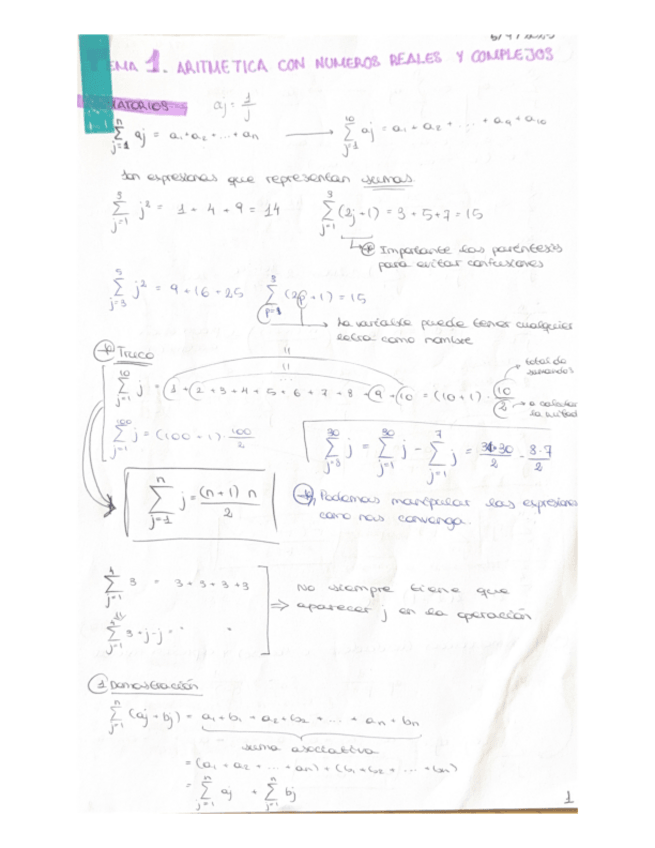 TEMA 1. ARITMETICA CON NUMEROS REALES Y COMPLEJOS
aj = 1/j
n ∑ j=1 aj = a1+a2+...+an → 10 ∑ j=1 aj = a1 + a2 + ... + a9 + a10
Son expresiones que representan sumas
3 ∑ j=1 j² = 1 + 4 + 9 = 14 3 ∑ j=1 (2j+1) = 3 + 5 + 7 = 15
Importante los paréntesis
para evitar confusiones
5 ∑ j=3 j² = 9 + 16 + 25 3 ∑ p=1 (2p+1) = 15
La variable puede tener cualquier
letra como nombre
Truco
11
11
total de
sumandos
10 ∑ j=1 j = 1 + 2 + 3 + 4 + 5 + 6 + 7 + 8 + 9 + 10 = (10+1) · 10/2
la mitad
100 ∑ j=1 j = (100+1) · 100/2
30 ∑ j=8 j = 30 ∑ j=1 j - 7 ∑ j=1 j = 31·30/2 - 8·7/2
n ∑ j=1 j = (n+1) n/2
Podemos manipular las expresiones
como nos convenga.
4 ∑ j=1 3 = 3 + 3 + 3 + 3
No siempre tiene que
⇒ aparecer j en la operación
∑ j=1 3+j-j = " "
1 Demostración
n ∑ j=1 (aj + bj) = a1 + b1 + a2 + b2 + ... + an + bn
suma asociativa
= (a1 + a2 + ... + an) + (b1 + b2 + ... + bn)
= n ∑ j=1 aj + n ∑ j=1 bj
1